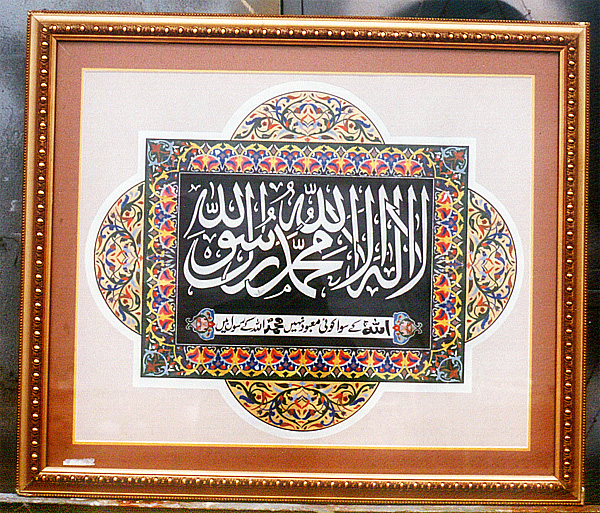 لا اله الا الله محمد رسول الله
اللہ کے سوا کوئی معبود نہیں محمدؐ اللہ کے رسول ہیں